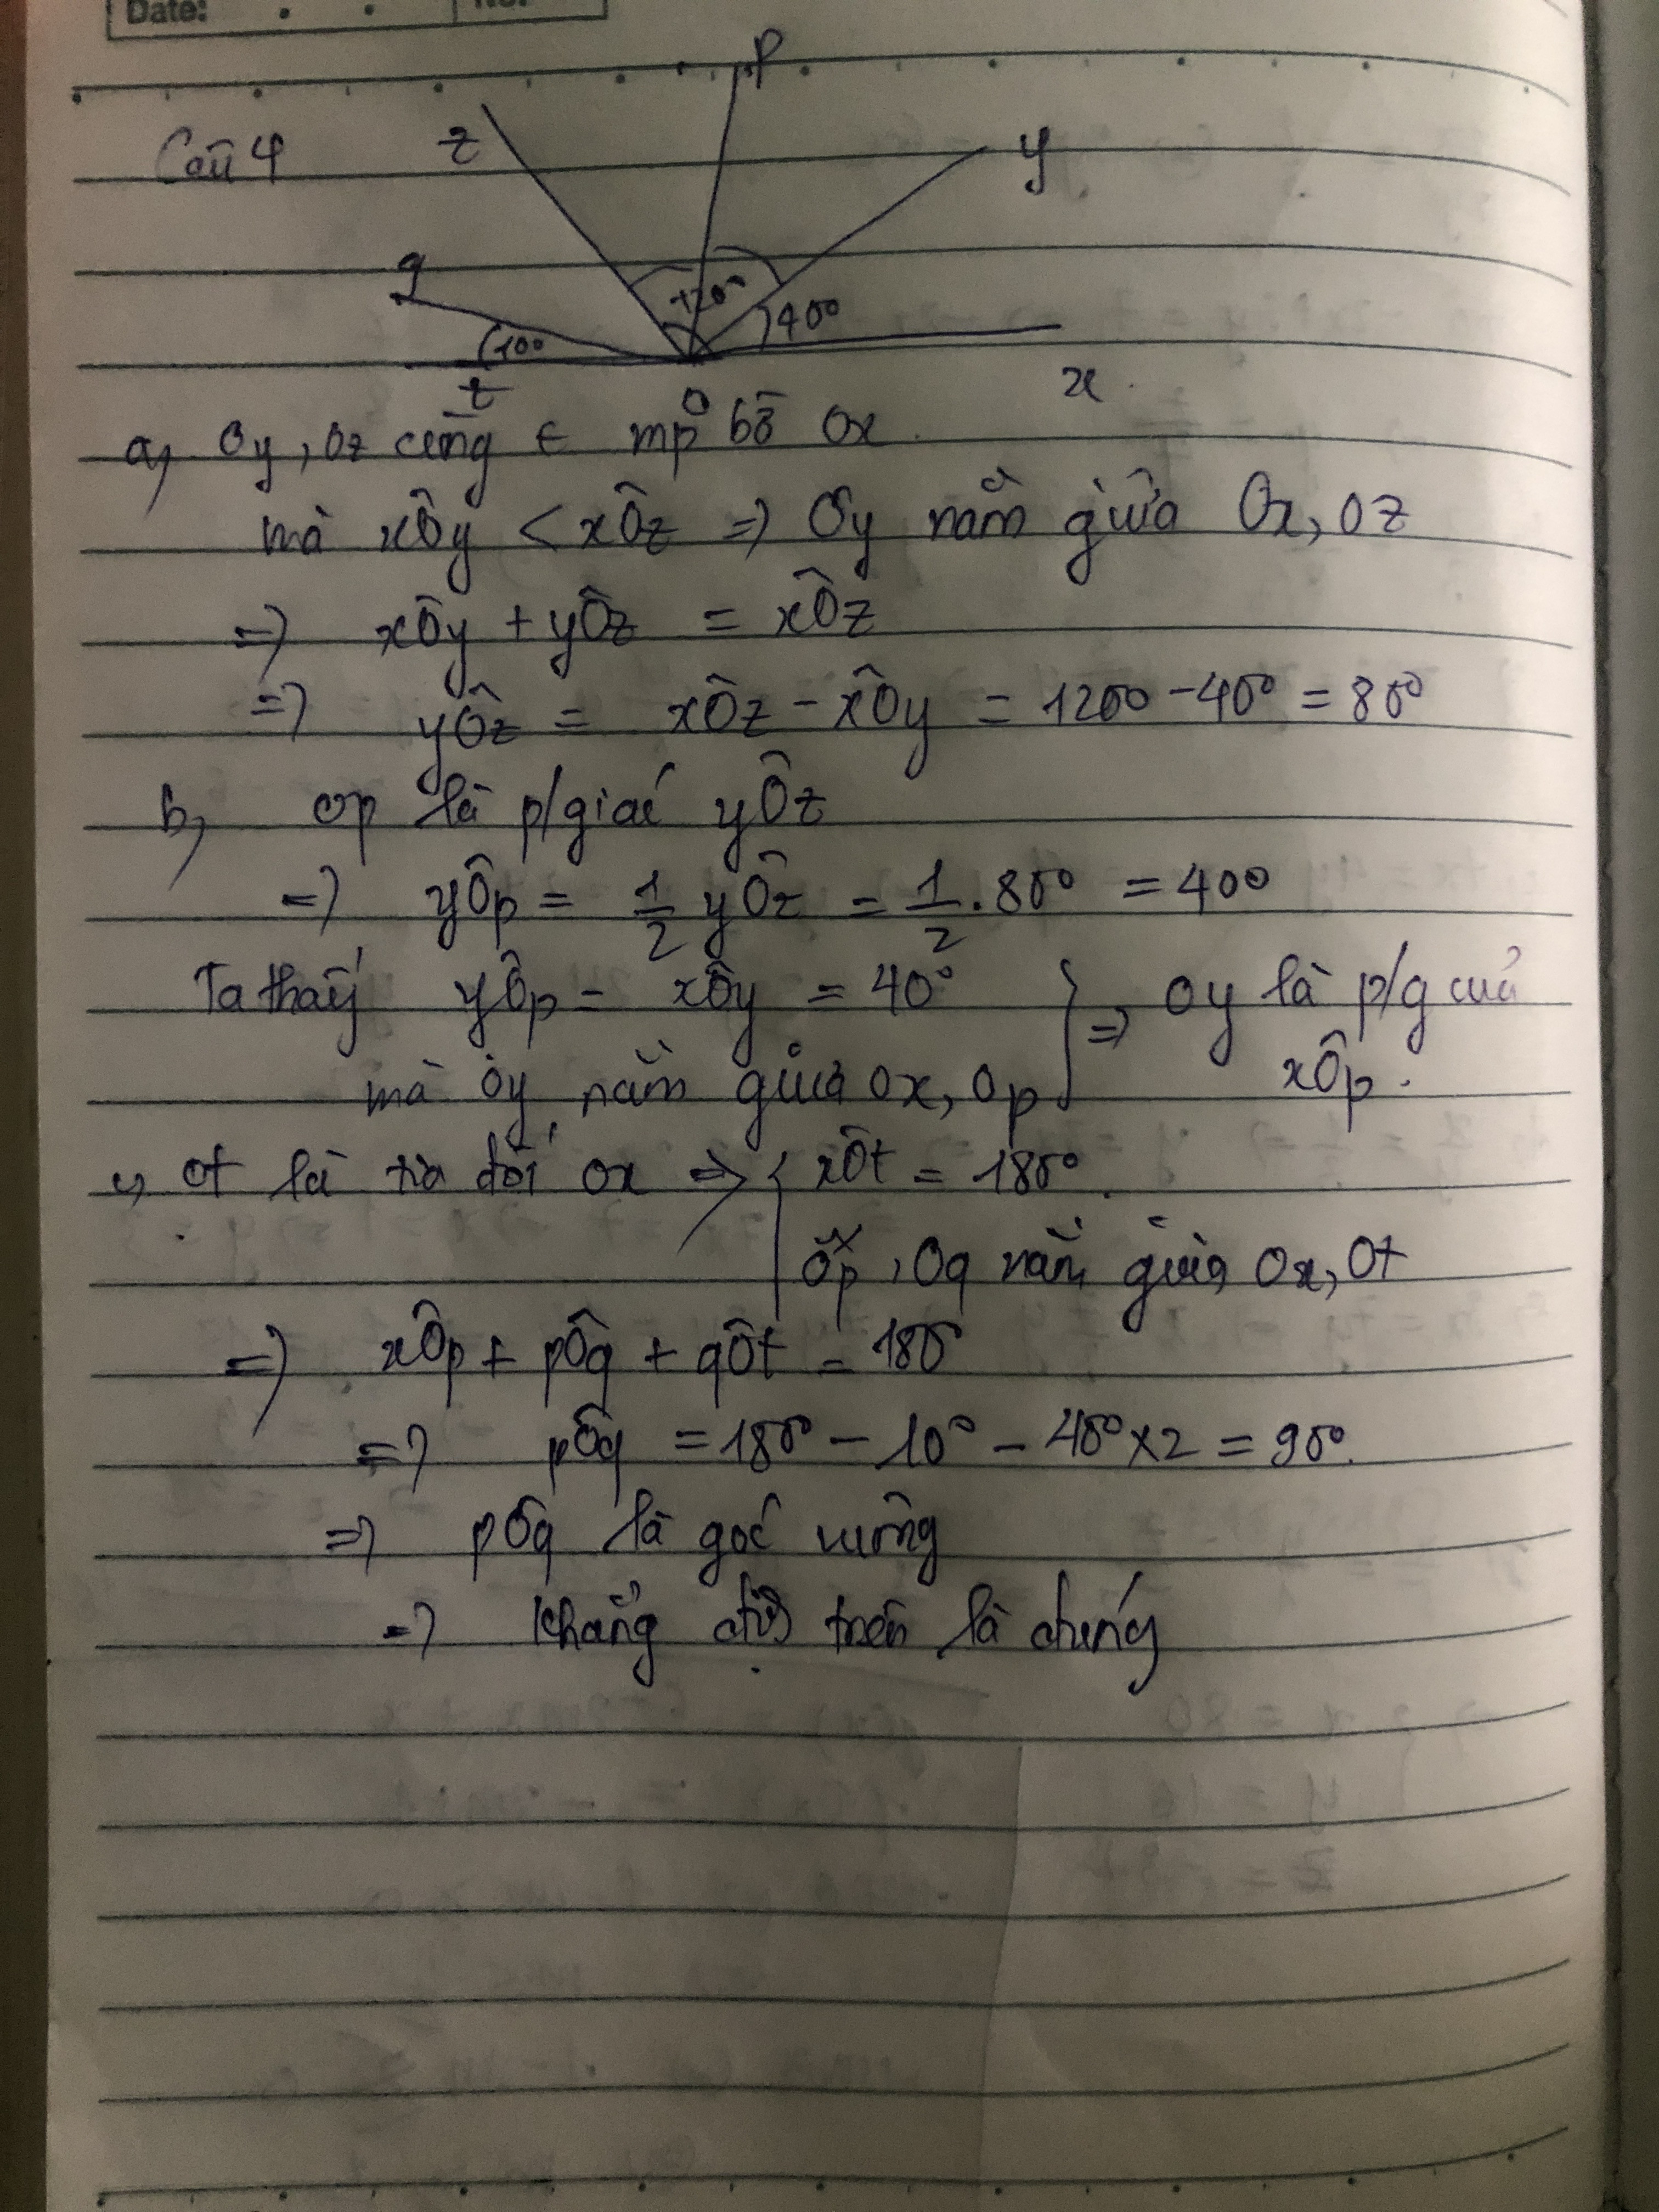 Date:
No:
Câu 4
p
z
y
q
120°
40°
10°
t
O
x
a, Oy, Oz cùng ∈ mp bờ Ox.
mà xÔy < xÔz => Oy nằm giữa Ox, Oz
=> xÔy + yÔz = xÔz
=> yÔz = xÔz - xÔy = 120° - 40° = 80°
b, Op là p/giác yÔz
=> yÔp = 1/2 yÔz = 1/2 . 80° = 40°
Ta thấy yÔp = xÔy = 40°
mà Oy nằm giữa Ox, Op } => Oy là p/g của xÔp.
c, Ot là tia đối Ox => { xÔt = 180°.
Op, Oq nằm giữa Ox, Ot
=> xÔp + pÔq + qÔt = 180°
=> pÔq = 180° - 10° - 40° x 2 = 90°.
=> pÔq là góc vuông
=> khẳng định trên là đúng